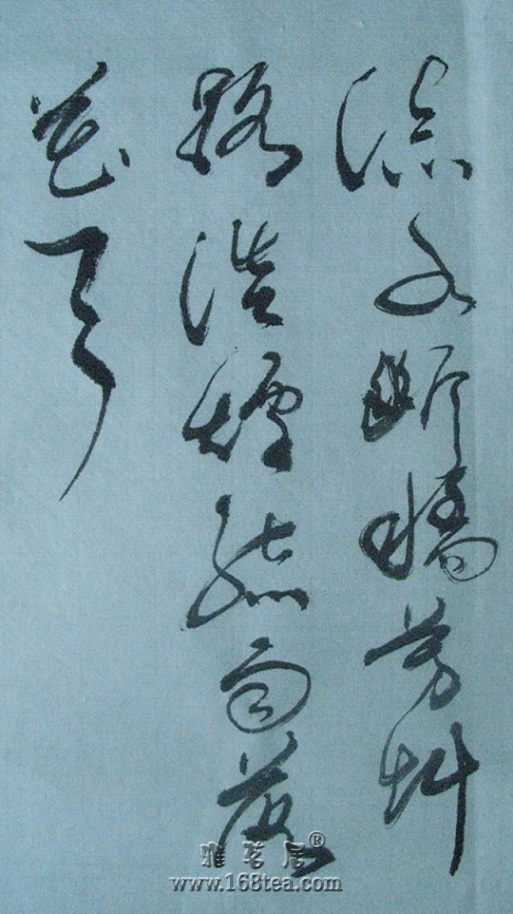 流水斷橋芳艸
路淡煙疏雨落
花天
雅茗居®
www.168tea.com